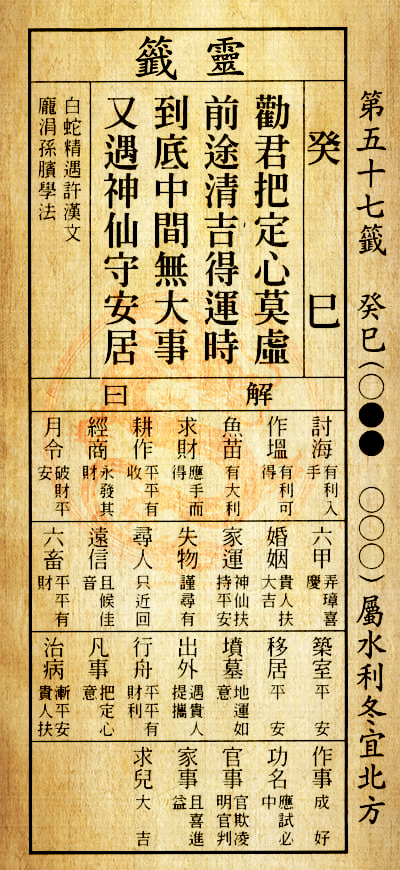 第五十七籤　癸巳(〇●●　〇〇〇)屬水利冬宜北方
靈籤
癸巳
勸君把定心莫虛
前途清吉得運時
到底中間無大事
又遇神仙守安居
白蛇精遇許漢文
龐涓孫臏學法
解曰
討海　有利入手
作塭　有利可得
魚苗　有大利
求財　應手而得
耕作　平平有收
經商　永發其財
月令　破財平安
六甲　弄璋喜慶
婚姻　貴人扶大吉
家運　神仙扶持平安
失物　謹尋有
尋人　只近回
遠信　且候佳音
六畜　平平有財
築室　平安
移居　平安
墳墓　地運如意
出外　遇貴人提攜
行舟　平平有財利
凡事　把定心意
治病　漸平安貴人扶
作事　成好
功名　應試必中
官事　官欺凌明官判
家事　且喜進益
求兒　大吉